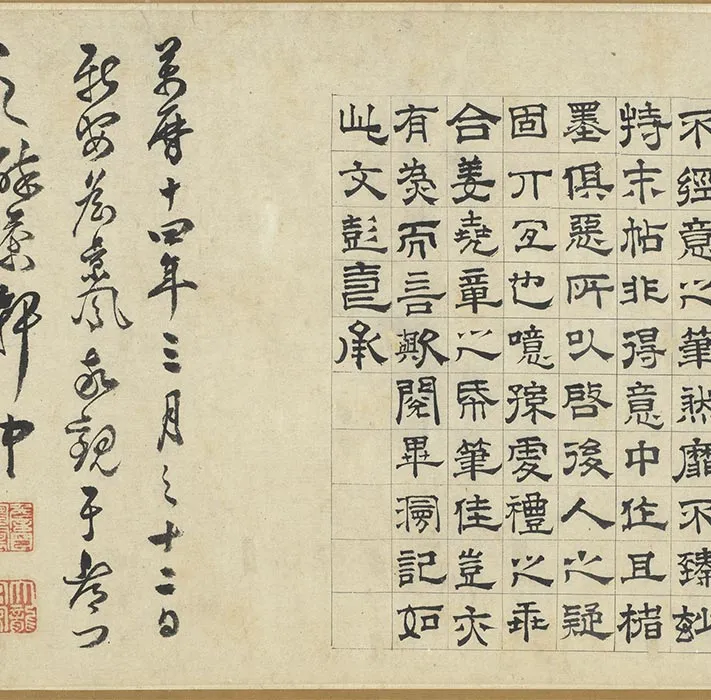 不經意之筆然靡不臻妙
特末帖非得意中作且楮
墨俱惡所以啓後人之疑
固亦宜也噫孫虔禮之乖
合姜堯章之帋筆佳豈亦
有為而言歟閱畢漫記如
此文彭壽承
萬曆十四年三月之十二日
新安詹景鳳敬觀于
之軒中